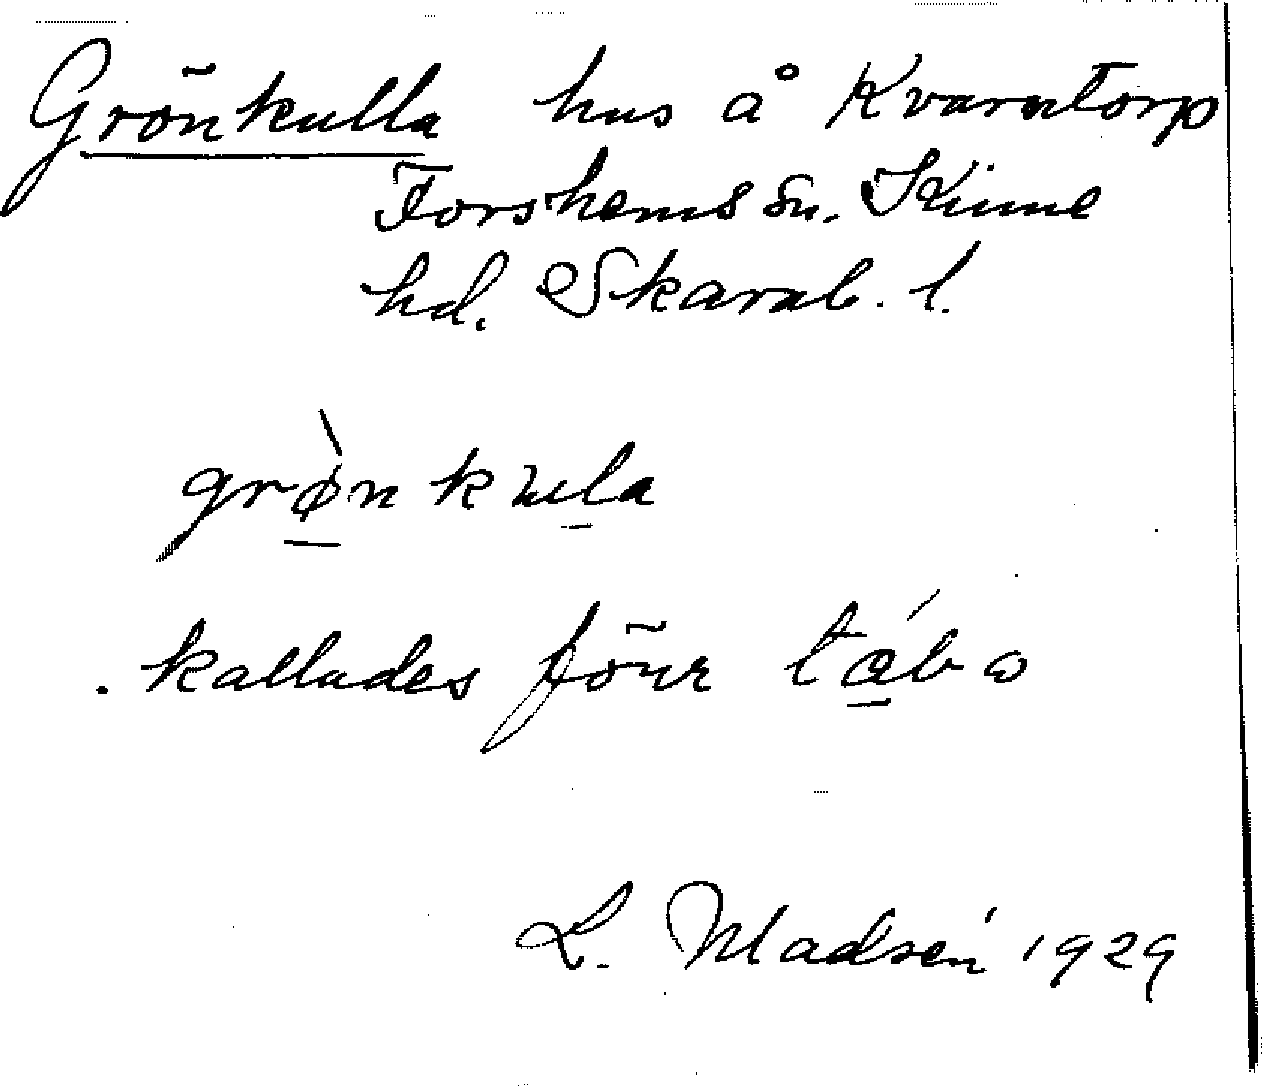 Grönkulla hus å Kvarntorp
Forshems sn. Kinne
hd. Skarab. l.
grø̀nkula
kallades förr
L. Madsén 1929